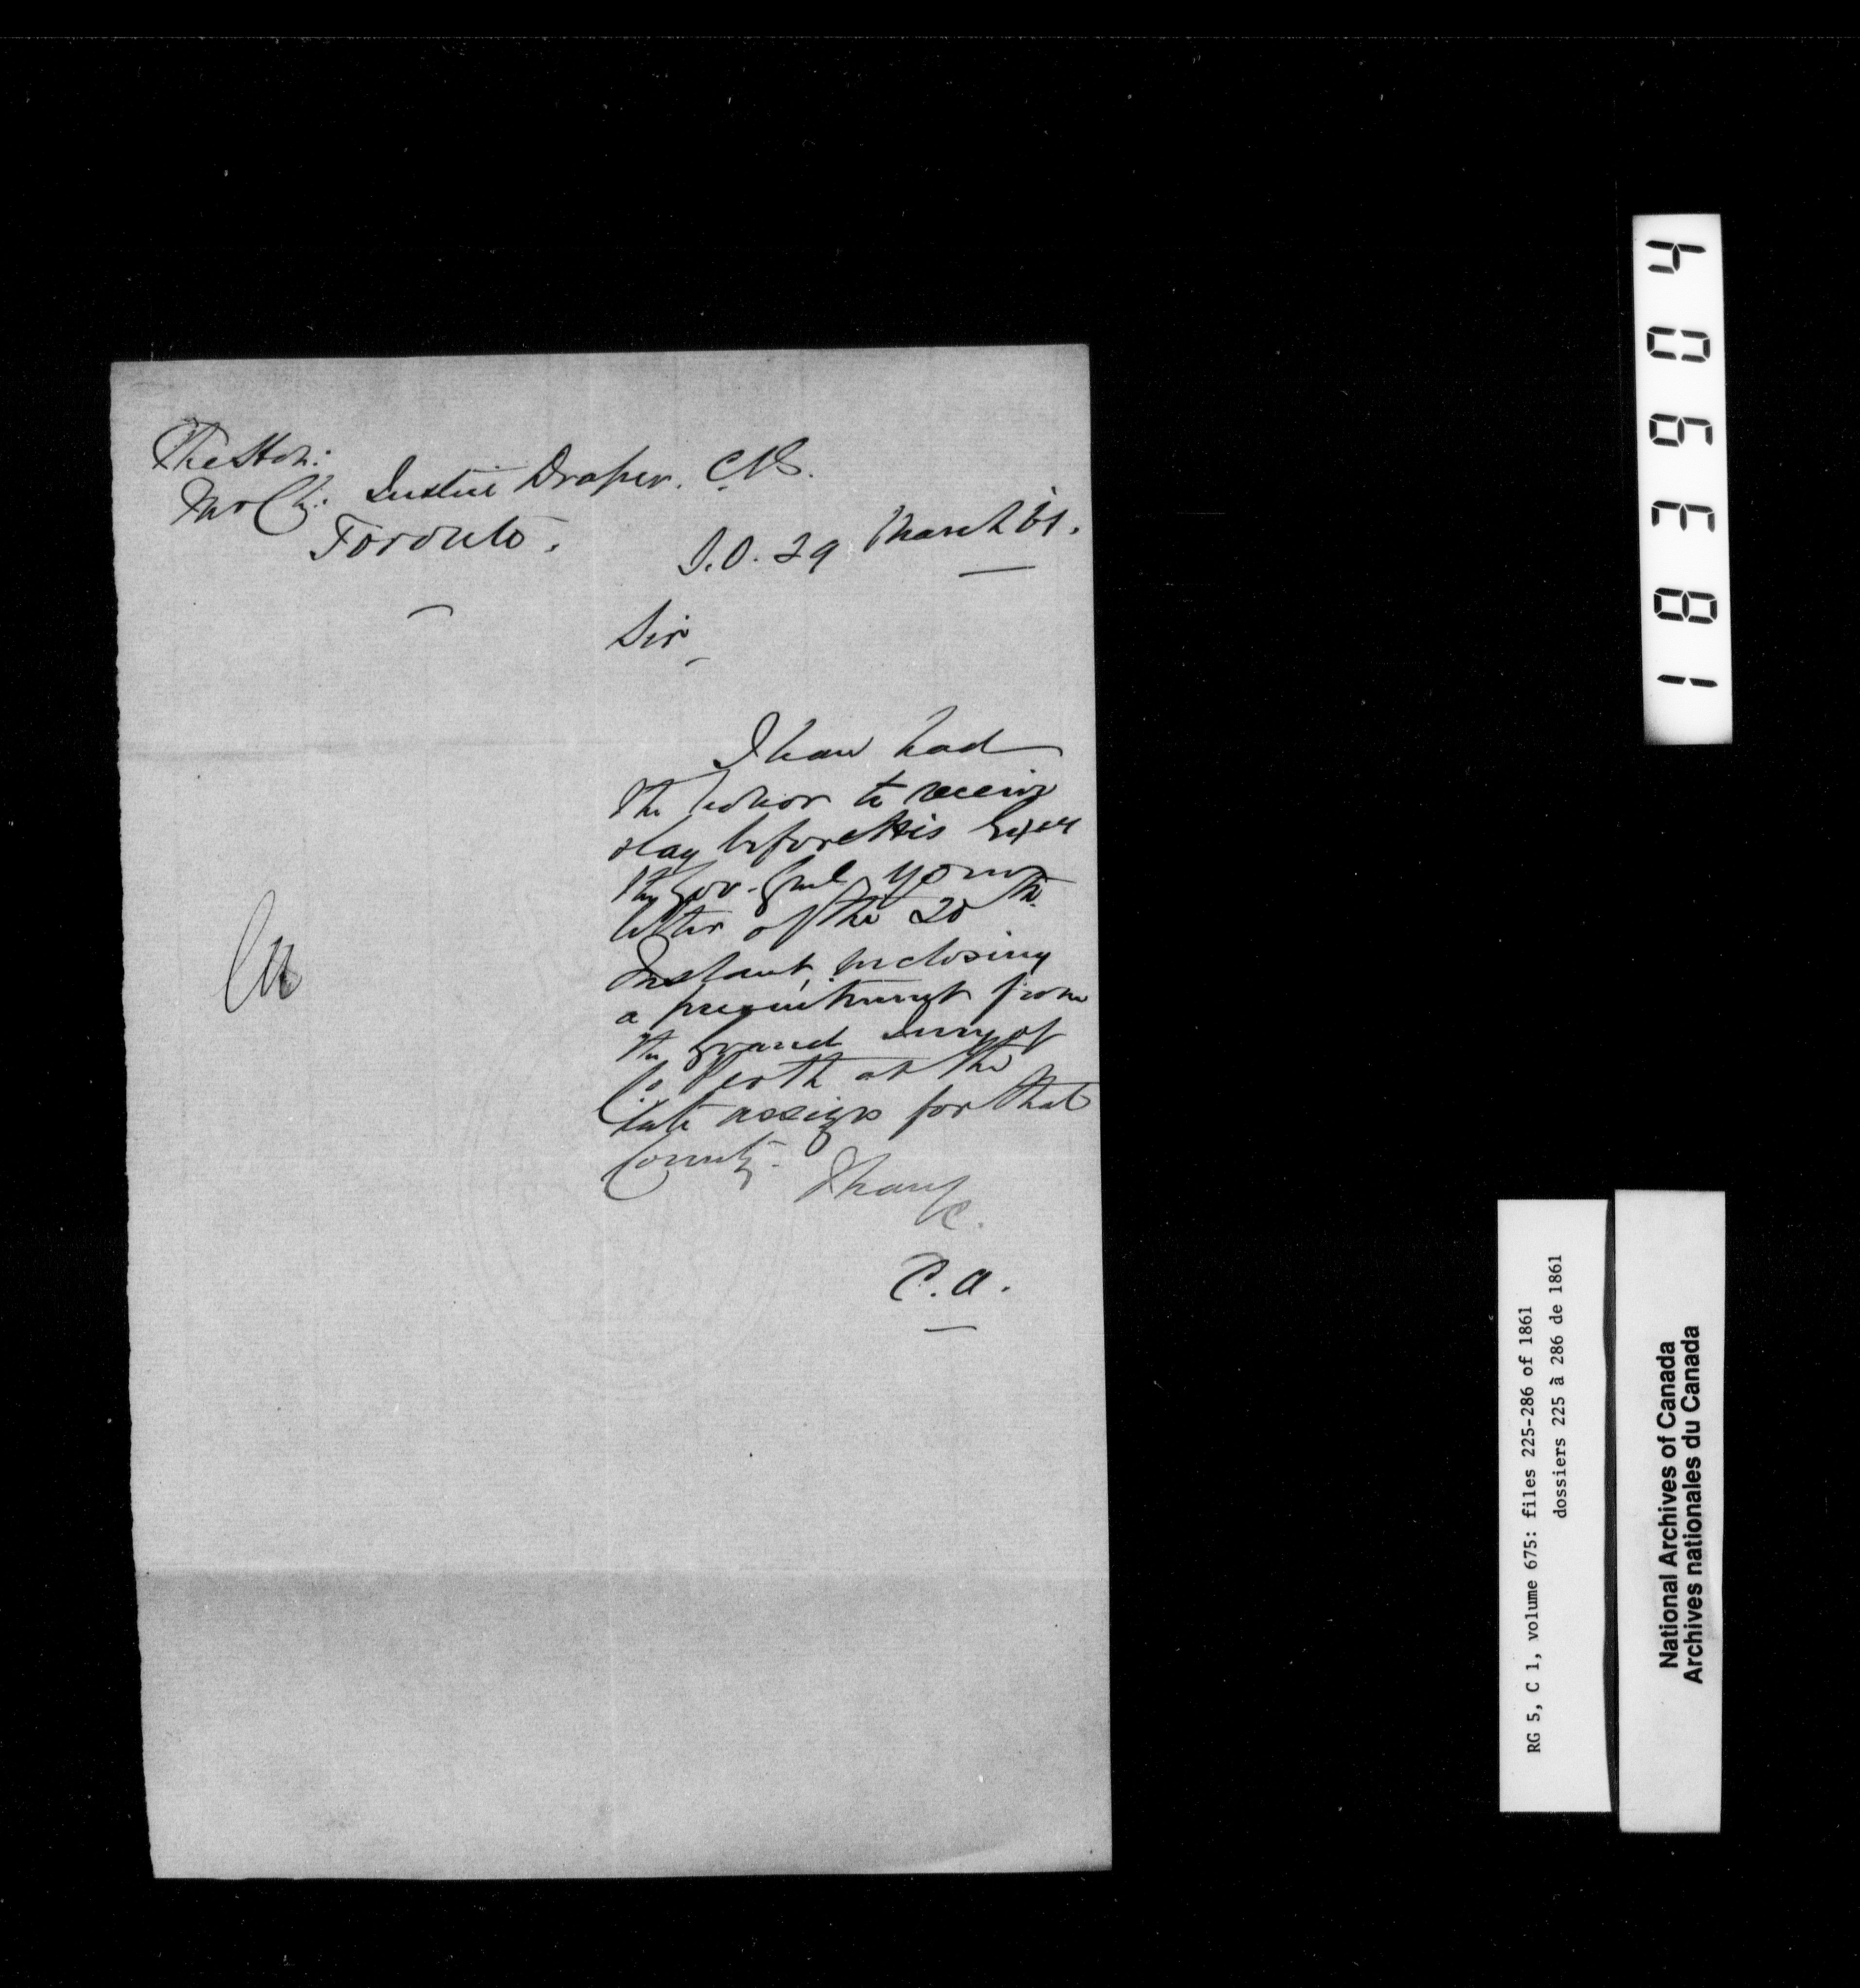 The Hon:
Mr Ch: Justice Draper. C.B.
Toronto.
S.O. 29 March 61.
Sir,
I have had
the honor to receive
& lay before His Excy
the Gov. Genl your
letter of the 20th
Instant, inclosing
a presentment from
the Grand Jury of
Co. Perth at the
late assizes for that
County.
I have
&c.
C.A.
183904
RG 5, C 1, volume 675: files 225-286 of 1861
dossiers 225 à 286 de 1861
National Archives of Canada
Archives nationales du Canada